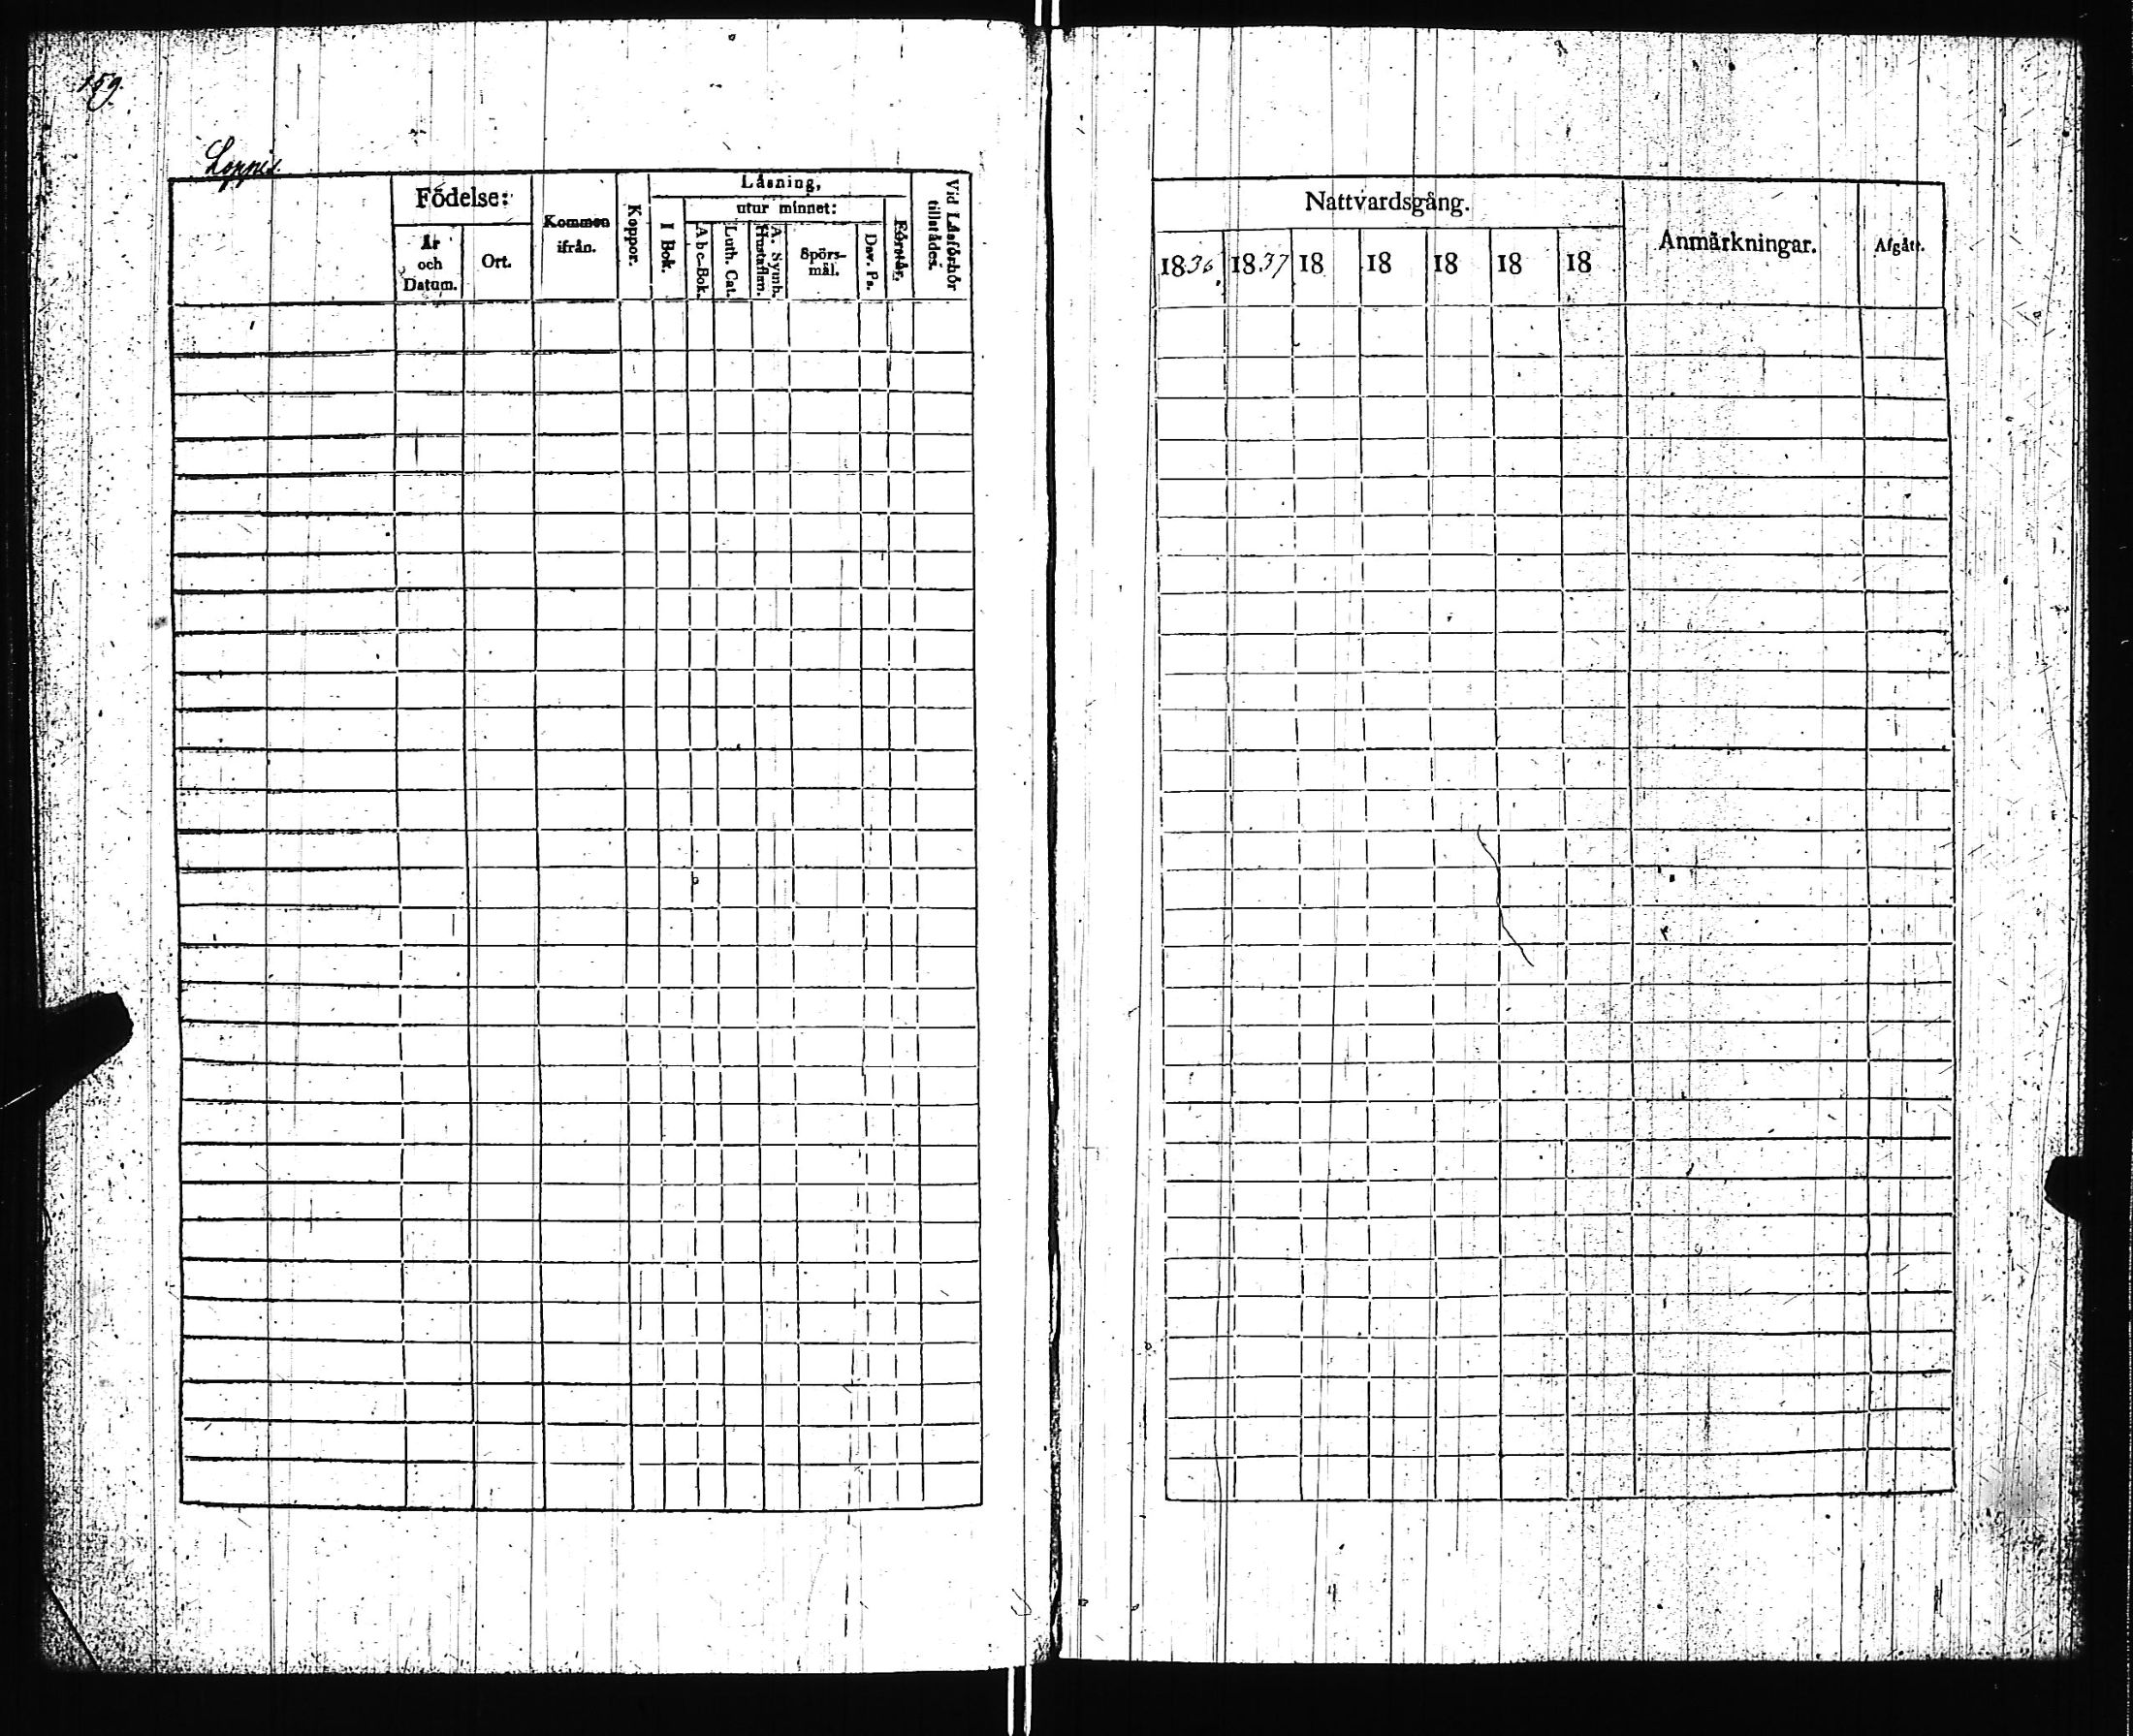 159.
Loppis.
Födelse:
År
och
Datum.
Ort.
Kommen
ifrån.
Koppor.
Låsning,
I Bok.
utur minnet:
A b c-Bok.
Luth. Cat.
A. Symb.
Hustaflan.
Spörs-
mål.
Dav. Ps.
Förstår.
Vid Låsförhör
tillstådes.
Nattvardsgång.
1836
1837
18
18
18
18
18
Anmärkningar.
Afgått.